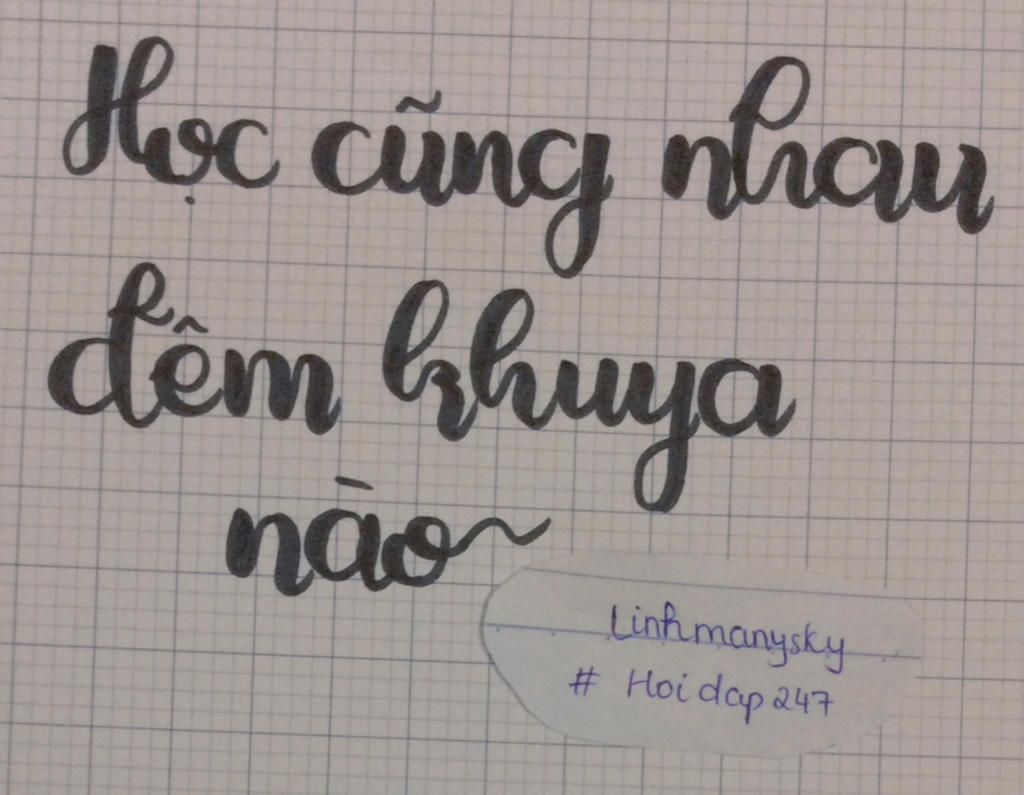 Học cũng nhau
đêm khuya
nào~
Linhmanysky
# Hoidap247